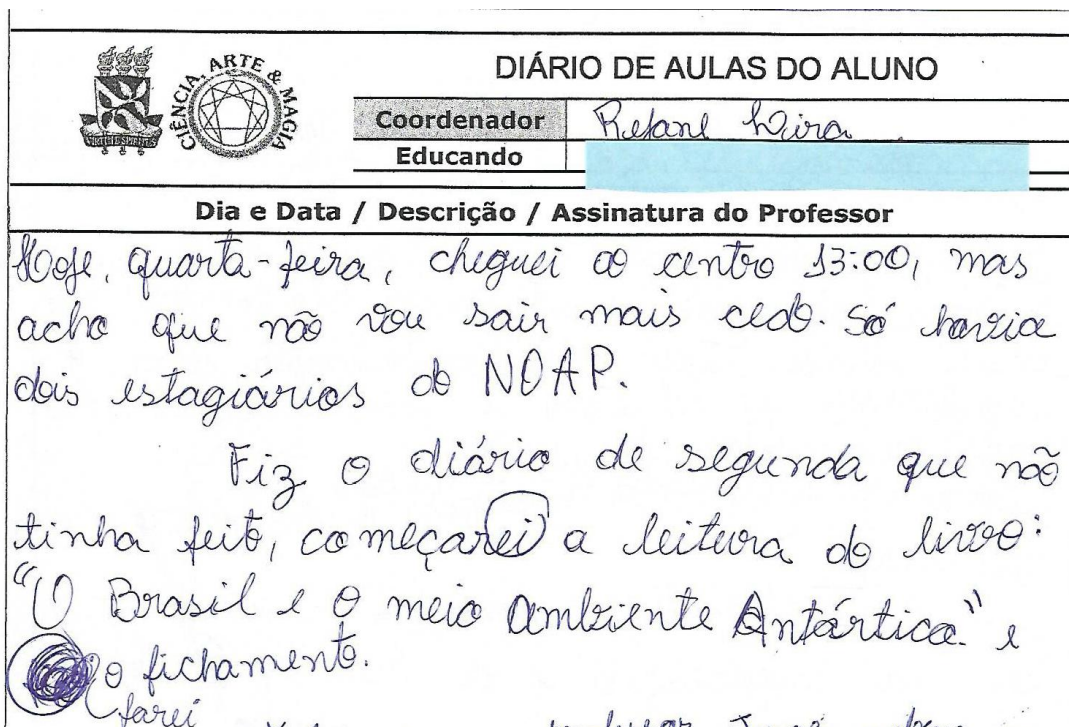 CIÊNCIA, ARTE & MAGIA
VIRTUTE SPIRITUS
DIÁRIO DE AULAS DO ALUNO
Coordenador Rejâne Lira
Educando
Dia e Data / Descrição / Assinatura do Professor
Hoje, quarta-feira, cheguei ao centro 13:00, mas
acho que não vou sair mais cedo. Só havia
dois estagiários do NOAP.
Fiz o diário de segunda que não
tinha feito, começarei a leitura do livro:
"O Brasil e o meio Ambiente Antártica" e
o fichamento.
farei